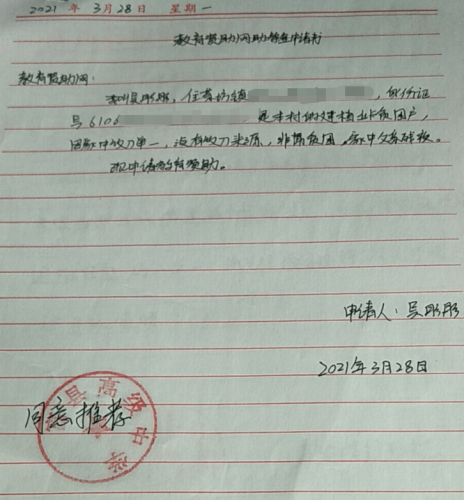 2021年3月28日 星期一
教育资助网助资金申请书
教育资助网:
我叫吴彤彤,住寺坊镇 ,身份证
号6106 ,是本村的建档立卡贫困户,
因家中收入单一,没有收入来源,非常贫困,家中父亲残疾。
现申请教育资助。
申请人:吴彤彤
2021年3月28日
同意推荐
县高级中学